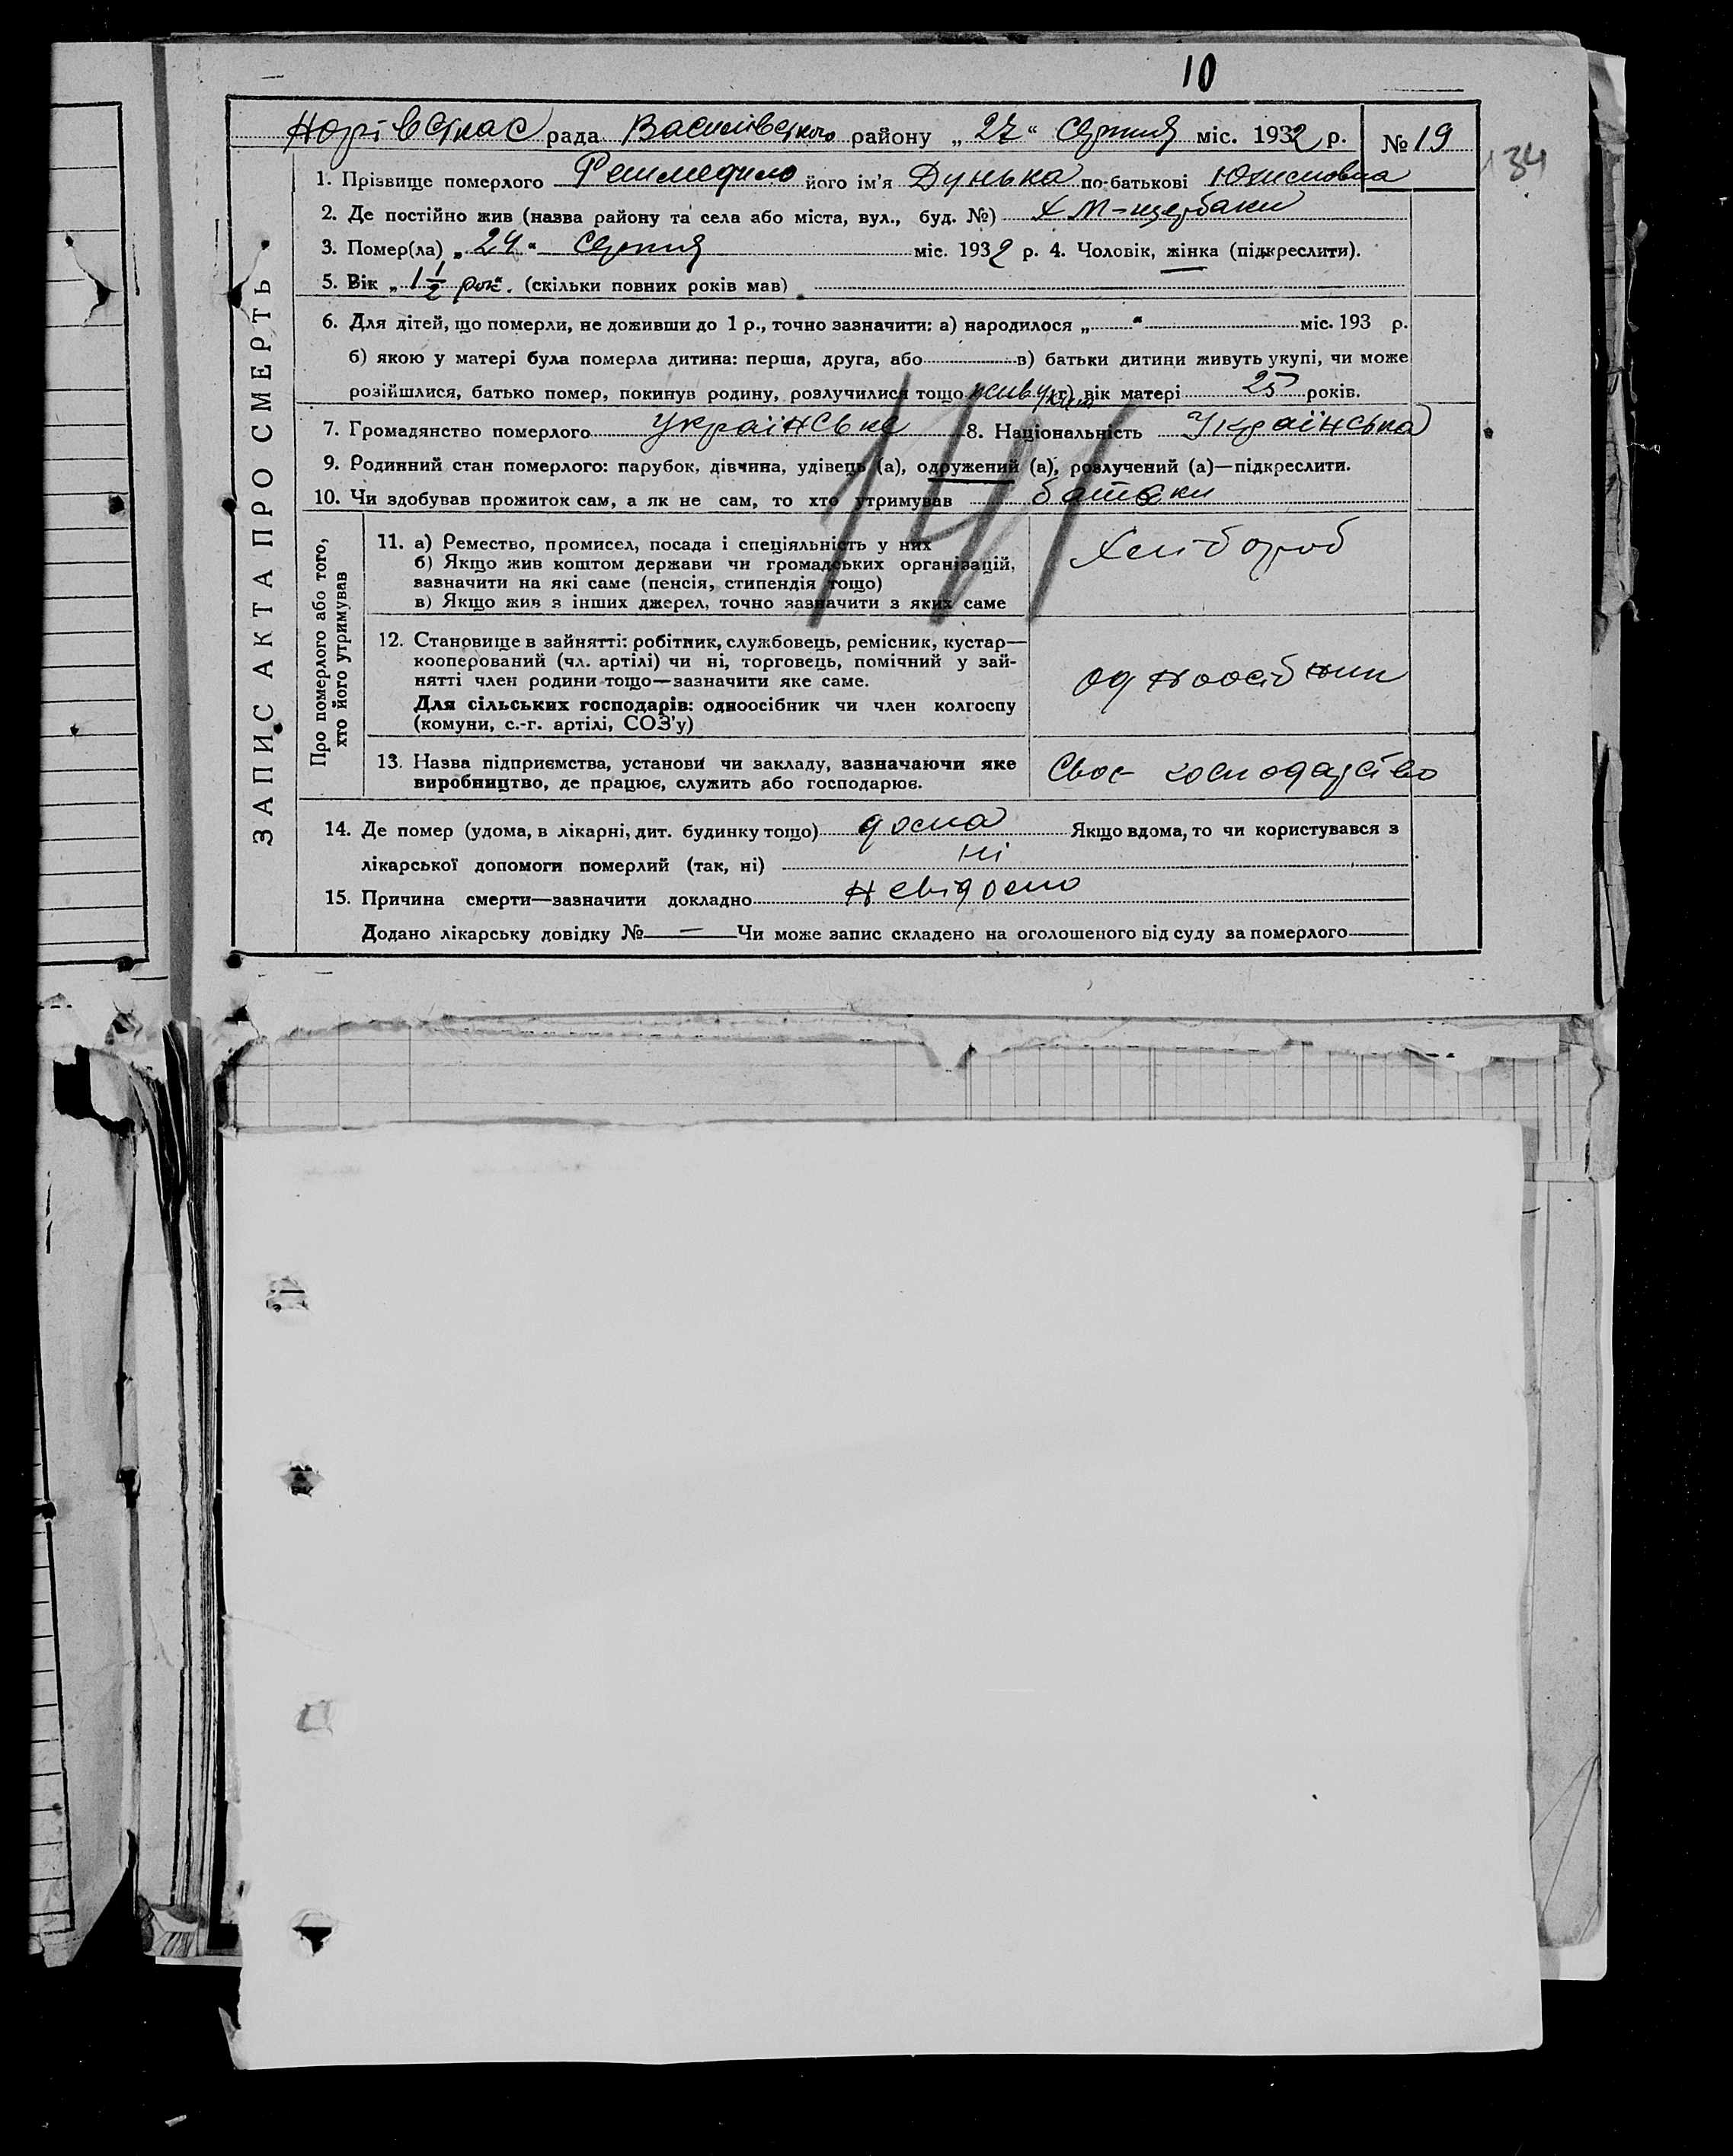 10
рада Василівського району „ 27 “ Серпня міс. 1932 р. № 19
134
1. Прізвище померлого його ім’я Дунька по-батькові
2. Де постійно жив (назва району та села або міста, вул., буд. №) Х М-щербаки
3. Помер(ла) „ 24 “ Серпня міс. 1932 р. 4. Чоловік, жінка (підкреслити).
5. Вік „ 1 1/2 рок“. (скільки повних років мав)
6. Для дітей, що померли, не доживши до 1 р., точно зазначити: а) народилося „ “ міс. 193 р.
б) якою у матері була померла дитина: перша, друга, або в) батьки дитини живуть укупі, чи може
розійшлися, батько помер, покинув родину, розлучилися тощо г) вік матері 25 років.
7. Громадянство померлого Українське 8. Національність Українська
9. Родинний стан померлого: парубок, дівчина, удівець (а), одружений (а), розлучений (а)—підкреслити.
10. Чи здобував прожиток сам, а як не сам, то хто утримував батьки
141
ЗАПИС АКТА ПРО СМЕРТЬ
Про померлого або того,
хто його утримував
11. а) Ремество, промисел, посада і спеціяльність у них
б) Якщо жив коштом держави чи громадських організацій,
вазначити на які саме (пенсія, стипендія тощо)
в) Якщо жив з інших джерел, точно зазначити з яких саме
Хлібороб
12. Становище в зайнятті: робітник, службовець, ремісник, кустар—
кооперований (чл. артілі) чи ні, торговець, помічний у зай-
нятті член родини тощо—зазначити яке саме.
Для сільських господарів: одноосібник чи член колгоспу
(комуни, с.-г. артілі, СОЗ’у)
одноосібник
13. Назва підприємства, установи чи закладу, зазначаючи яке
виробництво, де працює, служить або господарює.
Своє господарство
14. Де помер (удома, в лікарні, дит. будинку тощо) дома Якщо вдома, то чи користувався з
лікарської допомоги померлий (так, ні) ні
15. Причина смерти—зазначити докладно невідомо
Додано лікарську довідку № — Чи може запис складено на оголошеного від суду за померлого